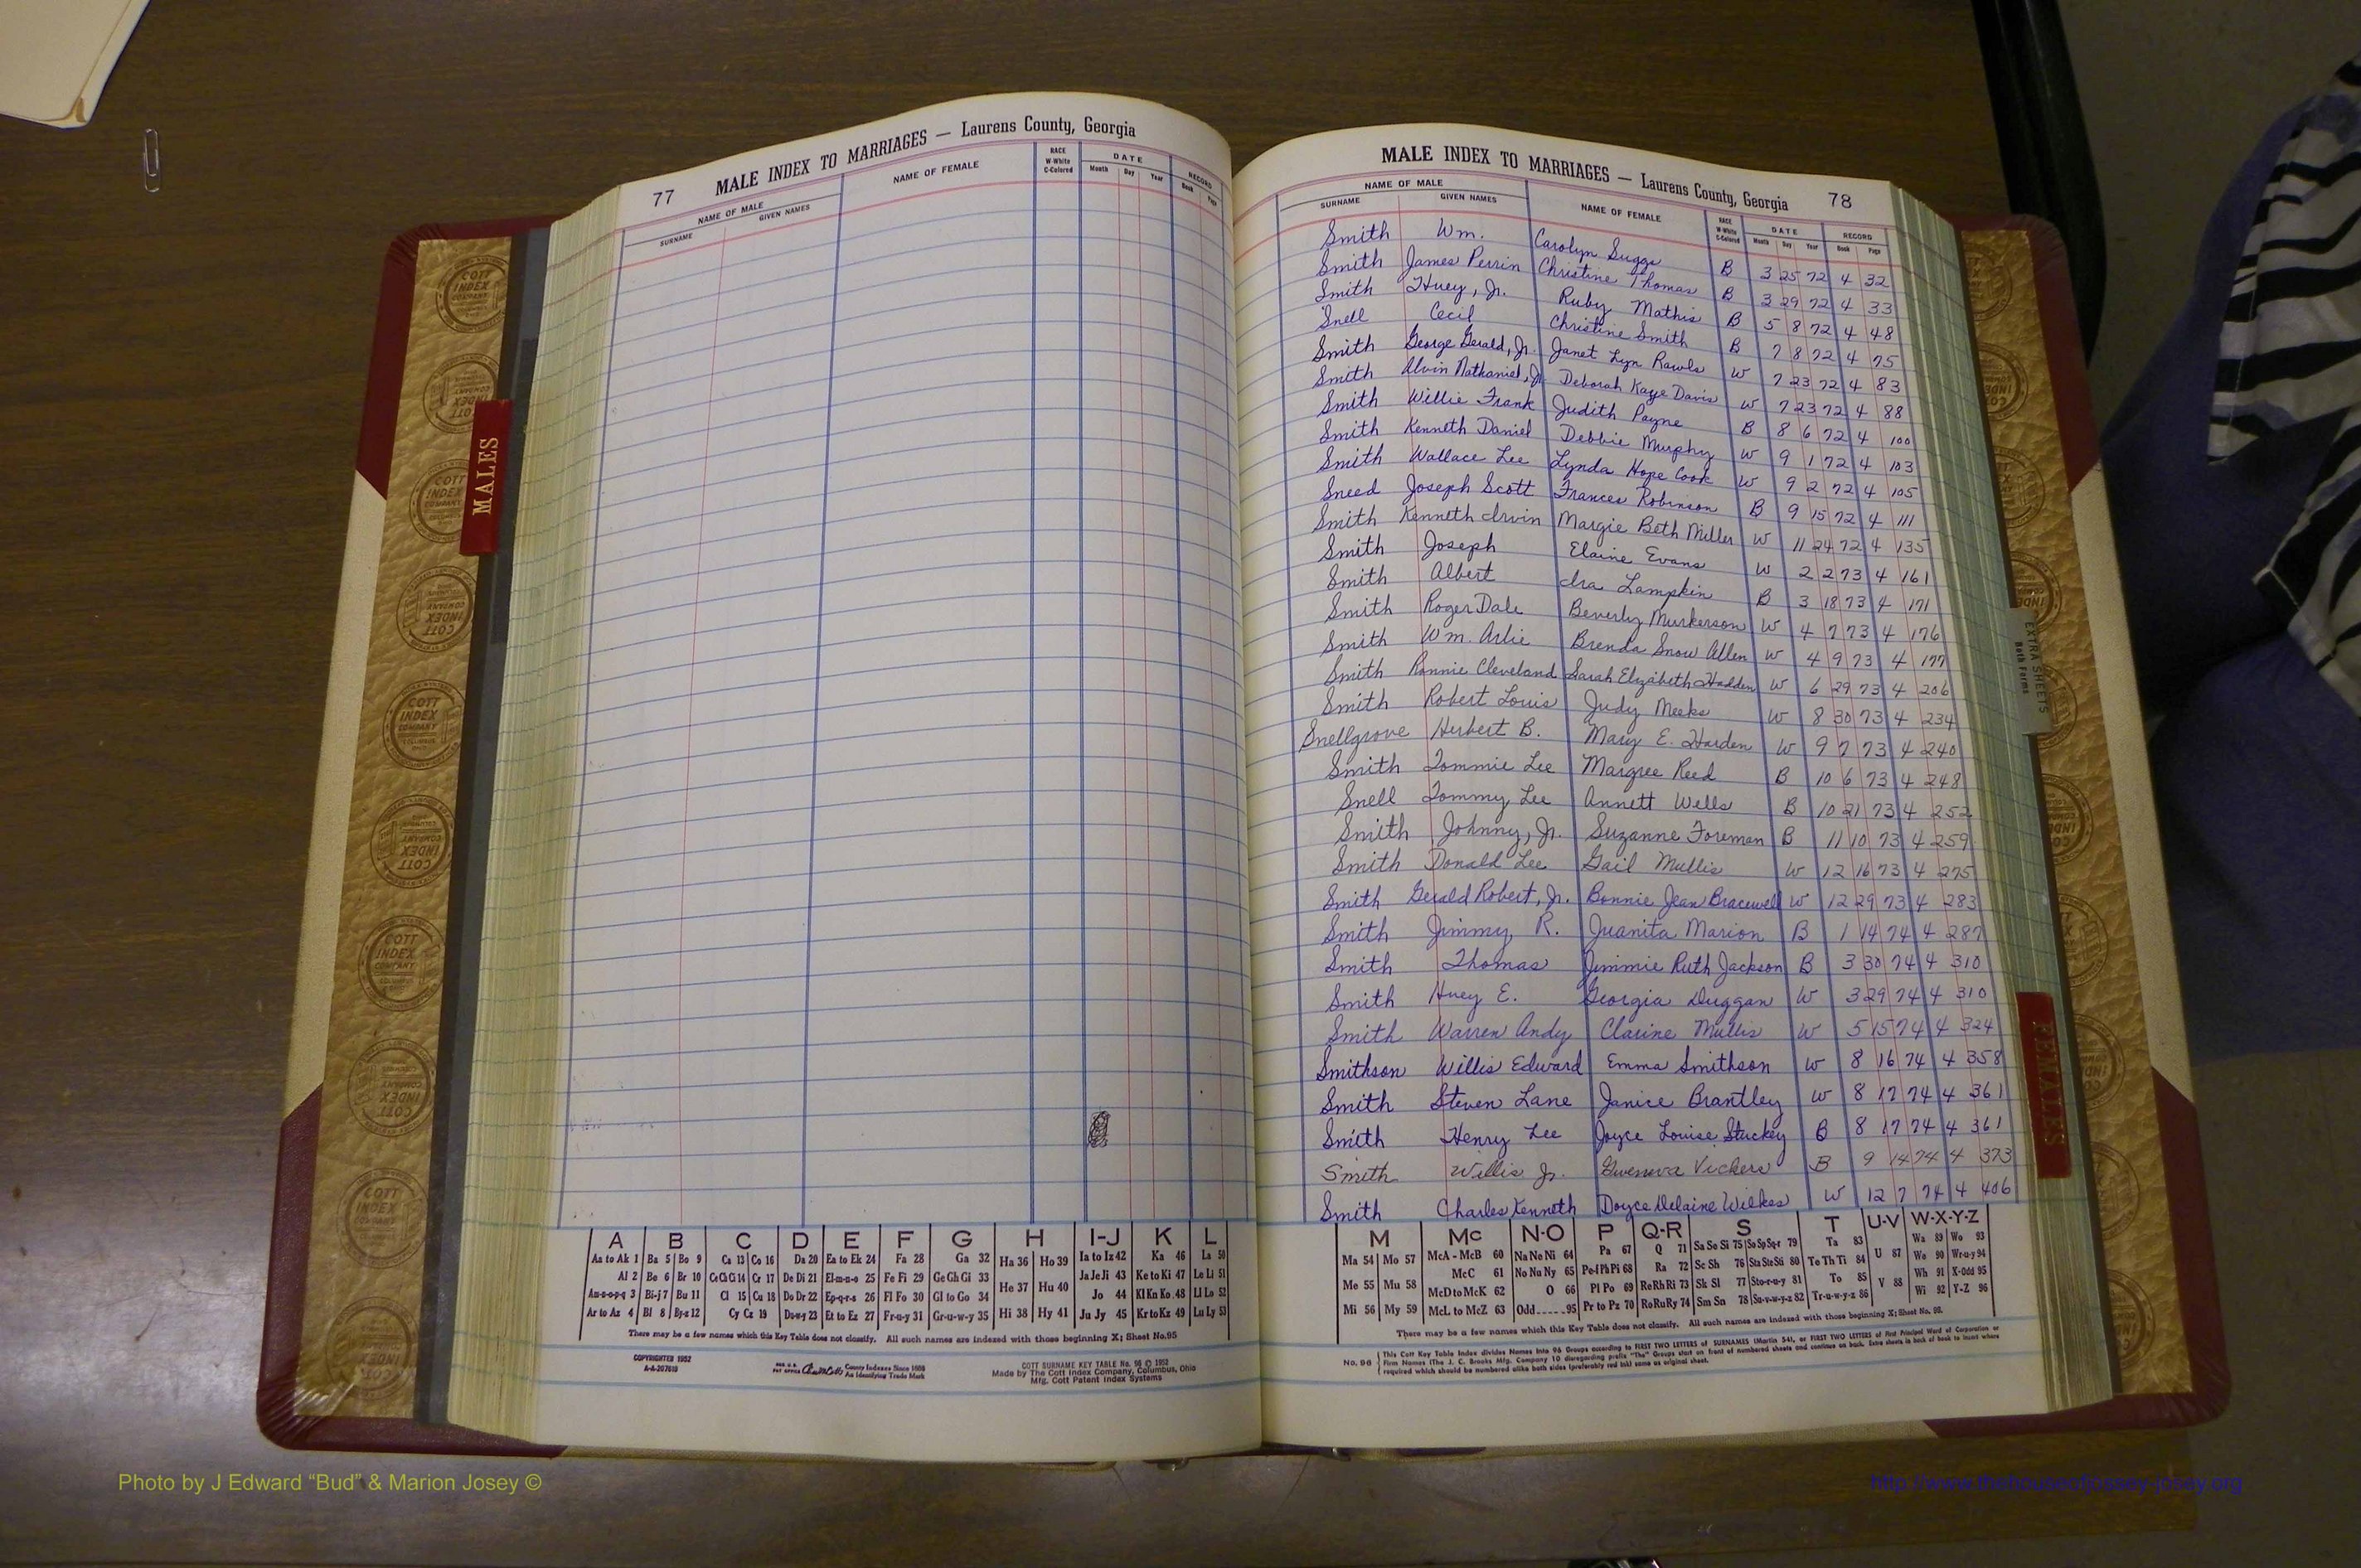 77 MALE INDEX TO MARRIAGES — Laurens County, Georgia
NAME OF MALE NAME OF FEMALE RACE W-White C-Colored DATE RECORD
SURNAME GIVEN NAMES Month Day Year Book Page
MALES
A B C D E F G H I-J K L
Aa to Ak 1 Ba 5 Bo 9 Ca 13 Co 16 Da 20 Ea to Ek 24 Fa 28 Ga 32 Ha 36 Ho 39 Ia to Iz 42 Ka 46 La 50
Al 2 Be 6 Br 10 Ce Ch Ci 14 Cr 17 De Di 21 El-m-n-o 25 Fe Fi 29 Ge Gh Gi 33 He 37 Hu 40 Ja Je Ji 43 Ke to Ki 47 Le Li 51
Am-n-o-p-q 3 Bi-j 7 Bu 11 Cl 15 Cu 18 Do Dr 22 Ep-q-r-s 26 Fl Fo 30 Gl to Go 34 Jo 44 Kl Kn Ko 48 Ll Lo 52
Ar to Az 4 Bl 8 By-z 12 Cy Cz 19 Du-w-y 23 Et to Ez 27 Fr-u-y 31 Gr-u-w-y 35 Hi 38 Hy 41 Ju Jy 45 Kr to Kz 49 Lu Ly 53
There may be a few names which this Key Table does not classify. All such names are indexed with those beginning X; Sheet No. 95
COPYRIGHTED 1952
A-A-207619
County Indexes Since 1888
An Identifying Trade Mark
COTT SURNAME KEY TABLE No. 96 © 1952
Made by The Cott Index Company, Columbus, Ohio
Mfg. Cott Patent Index Systems
MALE INDEX TO MARRIAGES — Laurens County, Georgia 78
NAME OF MALE NAME OF FEMALE RACE W-White C-Colored DATE RECORD
SURNAME GIVEN NAMES Month Day Year Book Page
Smith Wm. Carolyn Suggs B 3 25 72 4 32
Smith James Perrin Christine Thomas B 3 29 72 4 33
Smith Huey, Jr. Ruby Mathis B 5 8 72 4 48
Snell Cecil Christine Smith B 7 8 72 4 75
Smith George Gerald, Jr. Janet Lyn Rawls W 7 23 72 4 83
Smith Alvin Nathaniel, Jr. Deborah Kaye Davis W 7 23 72 4 88
Smith Willie Frank Judith Payne B 8 6 72 4 100
Smith Kenneth Daniel Debbie Murphy W 9 1 72 4 103
Smith Wallace Lee Lynda Hope Cook W 9 2 72 4 105
Sneed Joseph Scott Frances Robinson B 9 15 72 4 111
Smith Kenneth Irvin Margie Beth Miller W 11 24 72 4 135
Smith Joseph Elaine Evans W 2 2 73 4 161
Smith Albert Ira Lampkin B 3 18 73 4 171
Smith Roger Dale Beverly Murkerson W 4 7 73 4 176
Smith Wm. Arlie Brenda Snow Allen W 4 9 73 4 177
Smith Ronnie Cleveland Sarah Elizabeth Hadden W 6 29 73 4 206
Smith Robert Louis Judy Meeks W 8 30 73 4 234
Snellgrove Herbert B. Mary E. Harden W 9 7 73 4 240
Smith Tommie Lee Margree Reed B 10 6 73 4 248
Snell Tommy Lee Annett Wells B 10 21 73 4 252
Smith Johnny, Jr. Suzanne Foreman B 11 10 73 4 259
Smith Donald Lee Gail Mullis W 12 16 73 4 275
Smith Gerald Robert, Jr. Bonnie Jean Bracewell W 12 29 73 4 283
Smith Jimmy R. Juanita Marion B 1 14 74 4 287
Smith Thomas Jimmie Ruth Jackson B 3 30 74 4 310
Smith Huey E. Georgia Duggan W 3 29 74 4 310
Smith Warren Andy Clarine Mullis W 5 15 74 4 324
Smithson Willis Edward Emma Smithson W 8 16 74 4 358
Smith Steven Lane Janice Brantley W 8 17 74 4 361
Smith Henry Lee Joyce Louise Stuckey B 8 17 74 4 361
Smith Willis Jr. Gweneva Vickers B 9 14 74 4 373
Smith Charles Kenneth Doyce Delaine Wilkes W 12 7 74 4 406
M Mc N-O P Q-R S T U-V W-X-Y-Z
Ma 54 Mo 57 McA - McB 60 Na Ne Ni 64 Pa 67 Q 71 Sa Se Si 75 So Sp Sq-r 79 Ta 83 Wa 89 Wo 93
McC 61 No Nu Ny 65 Pe-f Ph Pi 68 Ra 72 Sc Sh 76 Sta Ste Sti 80 Te Th Ti 84 U 87 We 90 Wr-u-y 94
Me 55 Mu 58 McD to McK 62 O 66 Pl Po 69 Re Rh Ri 73 Sk Sl 77 Sto-r-u-y 81 To 85 V 88 Wh 91 X-Odd 95
Mi 56 My 59 McL to McZ 63 Odd.....95 Pr to Pz 70 Ro Ru Ry 74 Sm Sn 78 Su-v-w-y-z 82 Tr-u-w-y-z 86 Wi 92 Y-Z 96
There may be a few names which this Key Table does not classify. All such names are indexed with those beginning X; Sheet No. 95.
No. 96 This Cott Key Table Index divides Names into 96 Groups according to FIRST TWO LETTERS of SURNAMES (Martin 54), or FIRST TWO LETTERS of First Principal Word of Corporation or
Firm Names (The J. C. Brooks Mfg. Company 10 disregarding prefix "The" Groups start on front of numbered sheets and continue on back. Extra sheets in back of book to insert where
required which should be numbered alike both sides (preferably red ink) same as original sheet.
EXTRA SHEETS
Both Forms
FEMALES
COTT INDEX COMPANY
Photo by J Edward “Bud” & Marion Josey ©
http://www.thehouseofjossey-josey.org